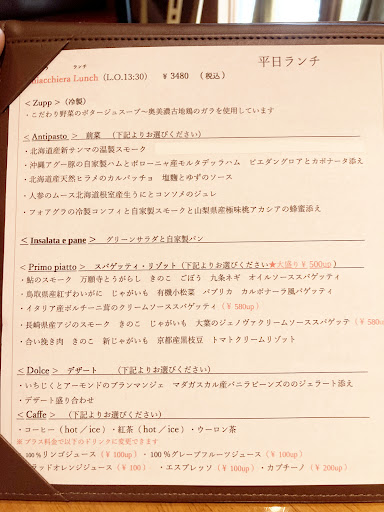 平日ランチ
ランチ
iacchiera Lunch（L.O.13:30） ￥3480 （税込）
＜Zupp＞（冷製）
・こだわり野菜のポタージュスープ～奥美濃古地鶏のガラを使用しています
＜Antipasto＞ 前菜 （下記よりお選びください）
・北海道産新サンマの温製スモーク
・沖縄アグー豚の自家製ハムとボローニャ産モルタデッラハム ピエダングロアとカポナータ添え
・北海道産天然ヒラメのカルパッチョ 塩麹とゆずのソース
・人参のムース北海道根室産生うにとコンソメのジュレ
・フォアグラの冷製コンフィと自家製スモークと山梨県産極味桃アカシアの蜂蜜添え
＜Insalata e pane＞ グリーンサラダと自家製パン
＜Primo piatto＞ スパゲッティ・リゾット（下記よりお選びください★大盛り￥500up）
・鮎のスモーク 万願寺とうがらし きのこ ごぼう 九条ネギ オイルソーススパゲッティ
・鳥取県産紅ずわいがに じゃがいも 有機小松菜 パプリカ カルボナーラ風パゲッティ
・イタリア産ポルチーニ茸のクリームソーススパゲッティ（￥580up）
・長崎県産アジのスモーク きのこ じゃがいも 大葉のジェノヴァクリームソーススパゲッテ（￥580up）
・合い挽き肉 きのこ 新じゃがいも 京都産黒枝豆 トマトクリームリゾット
＜Dolce＞ デザート （下記よりお選びください）
・いちじくとアーモンドのブランマンジェ マダガスカル産バニラビーンズののジェラート添え
・デザート盛り合わせ
＜Caffe＞ （下記よりお選びください）
・コーヒー（hot／ice）・紅茶（hot／ice）・ウーロン茶
※プラス料金で以下のドリンクに変更できます
100％リンゴジュース（￥100up）・100％グレープフルーツジュース（￥100up）
ラッドオレンジジュース（￥100） ・エスプレッソ（￥100up）・カプチーノ（￥200up）